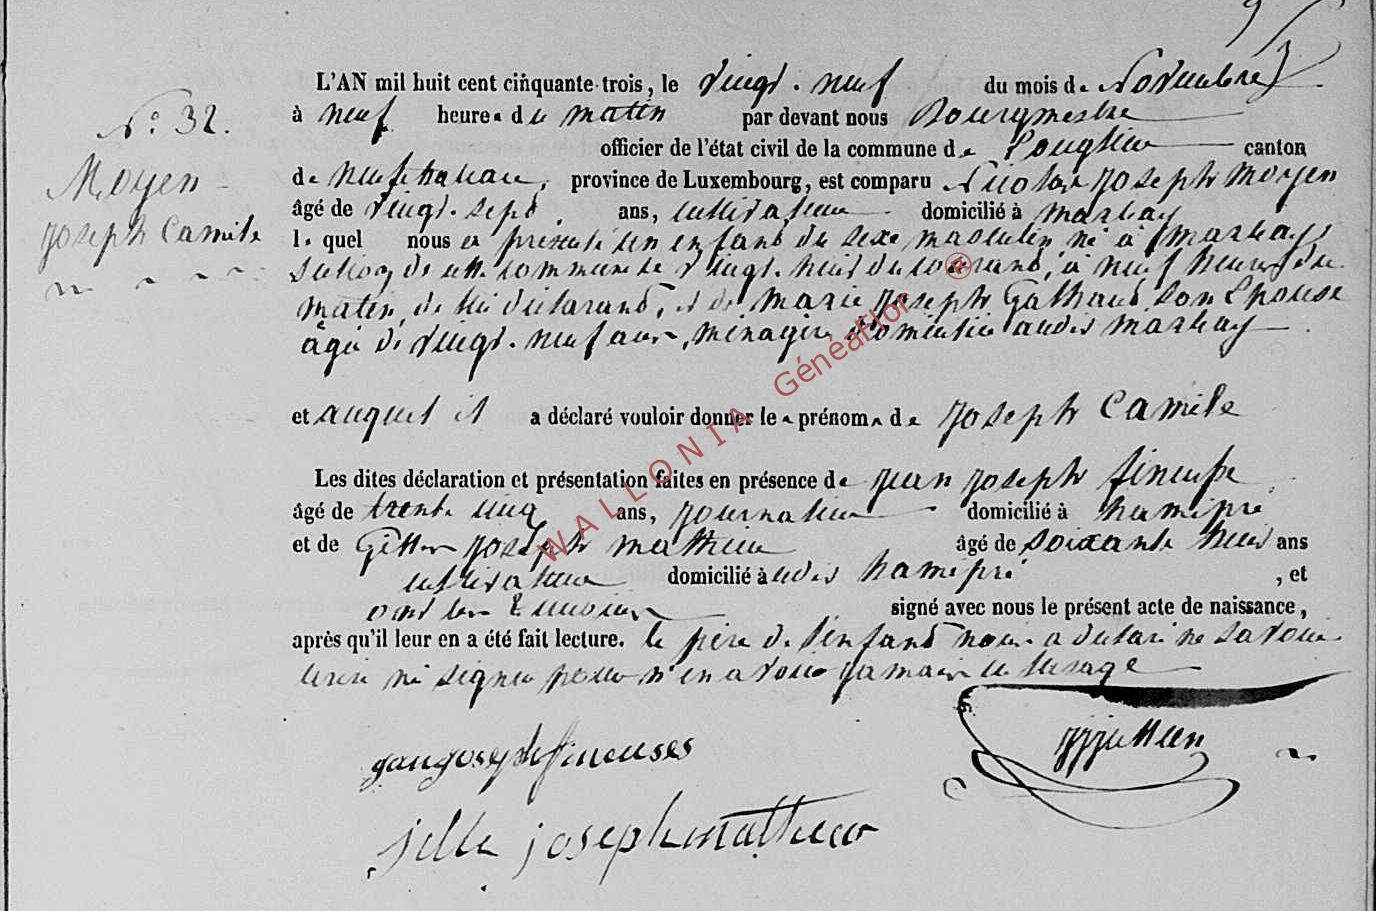 N.° 32.
Moyen
Joseph Camile
L'AN mil huit cent cinquante-trois, le vingt-neuf du mois de Novembre
à neuf heures du matin par devant nous Bourgmestre
officier de l'état civil de la commune de Longlier canton
de Neufchateau, province de Luxembourg, est comparu Nicolas Joseph Moyen
âgé de vingt-sept ans, cultivateur domicilié à Marbay
lequel nous a présenté un enfant du sexe masculin né à Marbay
section de cette commune le vingt-huit du courant, à neuf heures du
matin, de lui déclarant, et de Marie Joseph Gathaud son Epouse
âgée de vingt-neuf ans, ménagère, domiciliée audit Marbay
et auquel il a déclaré vouloir donner les prénoms de Joseph Camile
Les dites déclaration et présentation faites en présence de Jean Joseph
âgé de trente cinq ans, journalier domicilié à hamipré
et de Joseph Mathieu âgé de soixante huit ans
cultivateur domicilié audit hamipré , et
ont les témoins signé avec nous le présent acte de naissance,
après qu'il leur en a été fait lecture. le père de l'enfant nous a déclaré ne savoir
écrire ni signer pour n'en avoir jamais eu l'usage
jille joseph mathieu
WALLONIA Généaflor ®